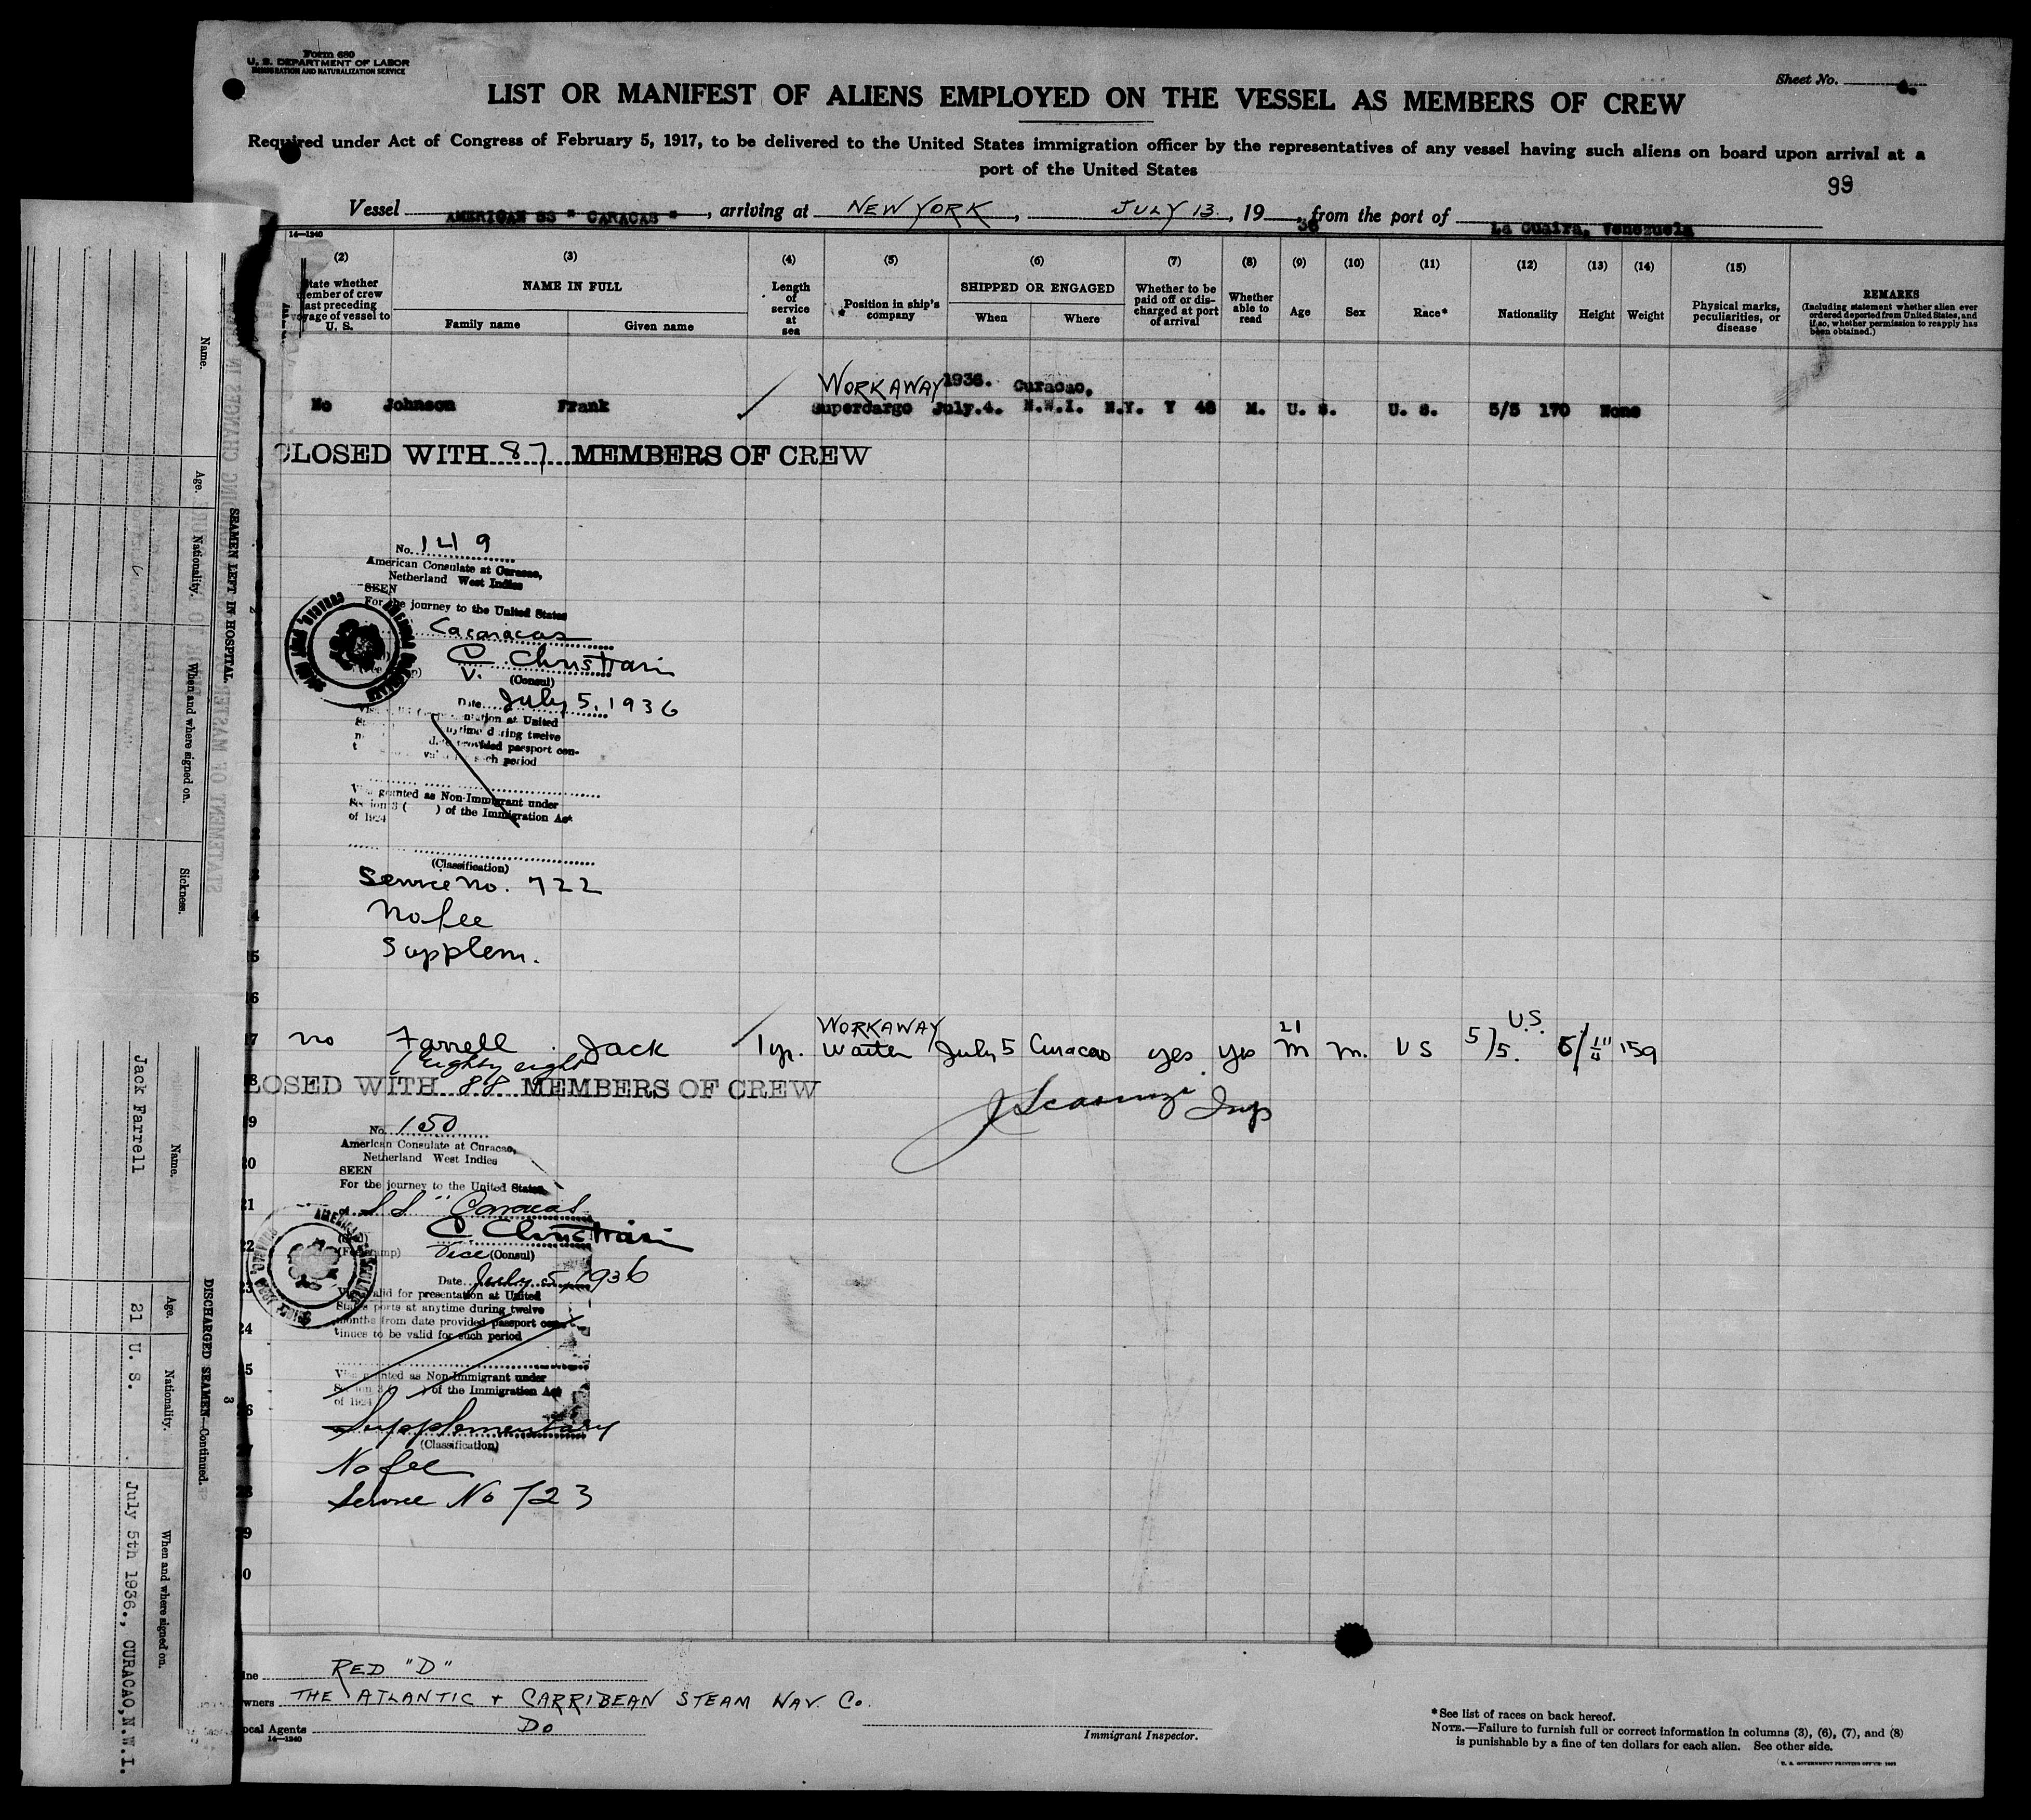 Form 680
U. S. DEPARTMENT OF LABOR
IMMIGRATION AND NATURALIZATION SERVICE
Sheet No.
LIST OR MANIFEST OF ALIENS EMPLOYED ON THE VESSEL AS MEMBERS OF CREW
Required under Act of Congress of February 5, 1917, to be delivered to the United States immigration officer by the representatives of any vessel having such aliens on board upon arrival at a
port of the United States
99
Vessel AMERICAN SS " CARACAS ", arriving at NEW YORK, JULY 13, 19 36, from the port of La Guaira, Venezuela
14—1240
(2) (3) (4) (5) (6) (7) (8) (9) (10) (11) (12) (13) (14) (15)
State whether member of crew last preceding voyage of vessel to U. S.
NAME IN FULL
Family name
Given name
Length of service at sea
Position in ship's company
SHIPPED OR ENGAGED
When
Where
Whether to be paid off or discharged at port of arrival
Whether able to read
Age
Sex
Race*
Nationality
Height
Weight
Physical marks, peculiarities, or disease
REMARKS
(Including statement whether alien ever ordered deported from United States, and if so, whether permission to reapply has been obtained.)
WORKAWAY 1936. Curacao,
No Johnson Frank Supercargo July.4. N.W.I. N.Y. Y 48 M. U. S. U. S. 5/5 170 None
CLOSED WITH 87 MEMBERS OF CREW
No. 149
American Consulate at Curacao,
Netherland West Indies
SEEN
For the journey to the United States
Cacaracas
C Christiari
V. (Consul)
Date July 5, 1936
ntation at United
anytime during twelve
date provided passport con-
such period
Visa granted as Non-Immigrant under
Section 3 ( ) of the Immigration Act
of 1924
(Classification)
Service No. 722
No fee
Supplem.
WORKAWAY 21 U.S.
no Farrell Jack 1 yr. Waiter July 5 Curacao yes yes m m. US 5/5. 5/ 159
Eighty eight
CLOSED WITH 88 MEMBERS OF CREW
Insp
No. 150
American Consulate at Curacao,
Netherland West Indies
SEEN
For the journey to the United States
SS "Caracas
C Christiari
(Fee stamp) Vice (Consul)
Date July 5, 1936
Visa valid for presentation at United
States ports at anytime during twelve
months from date provided passport con-
tinues to be valid for such period
Visa granted as Non-Immigrant under
Section 3 ( ) of the Immigration Act
of 1924
Supplementary
(Classification)
No fee
Service No 723
Line RED "D"
Owners THE ATLANTIC & CARRIBEAN STEAM NAV. Co.
Local Agents Do
14—1240
Immigrant Inspector.
*See list of races on back hereof.
NOTE.—Failure to furnish full or correct information in columns (3), (6), (7), and (8)
is punishable by a fine of ten dollars for each alien. See other side.
SEAMEN LEFT IN HOSPITAL.
Name. Age. Nationality. When and where signed on. Sickness.
DISCHARGED SEAMEN—Continued.
3
Name. Age. Nationality. When and where signed on.
Jack Farrell 21 U. S. July 5th 1936., CURACAO,N.W.I.